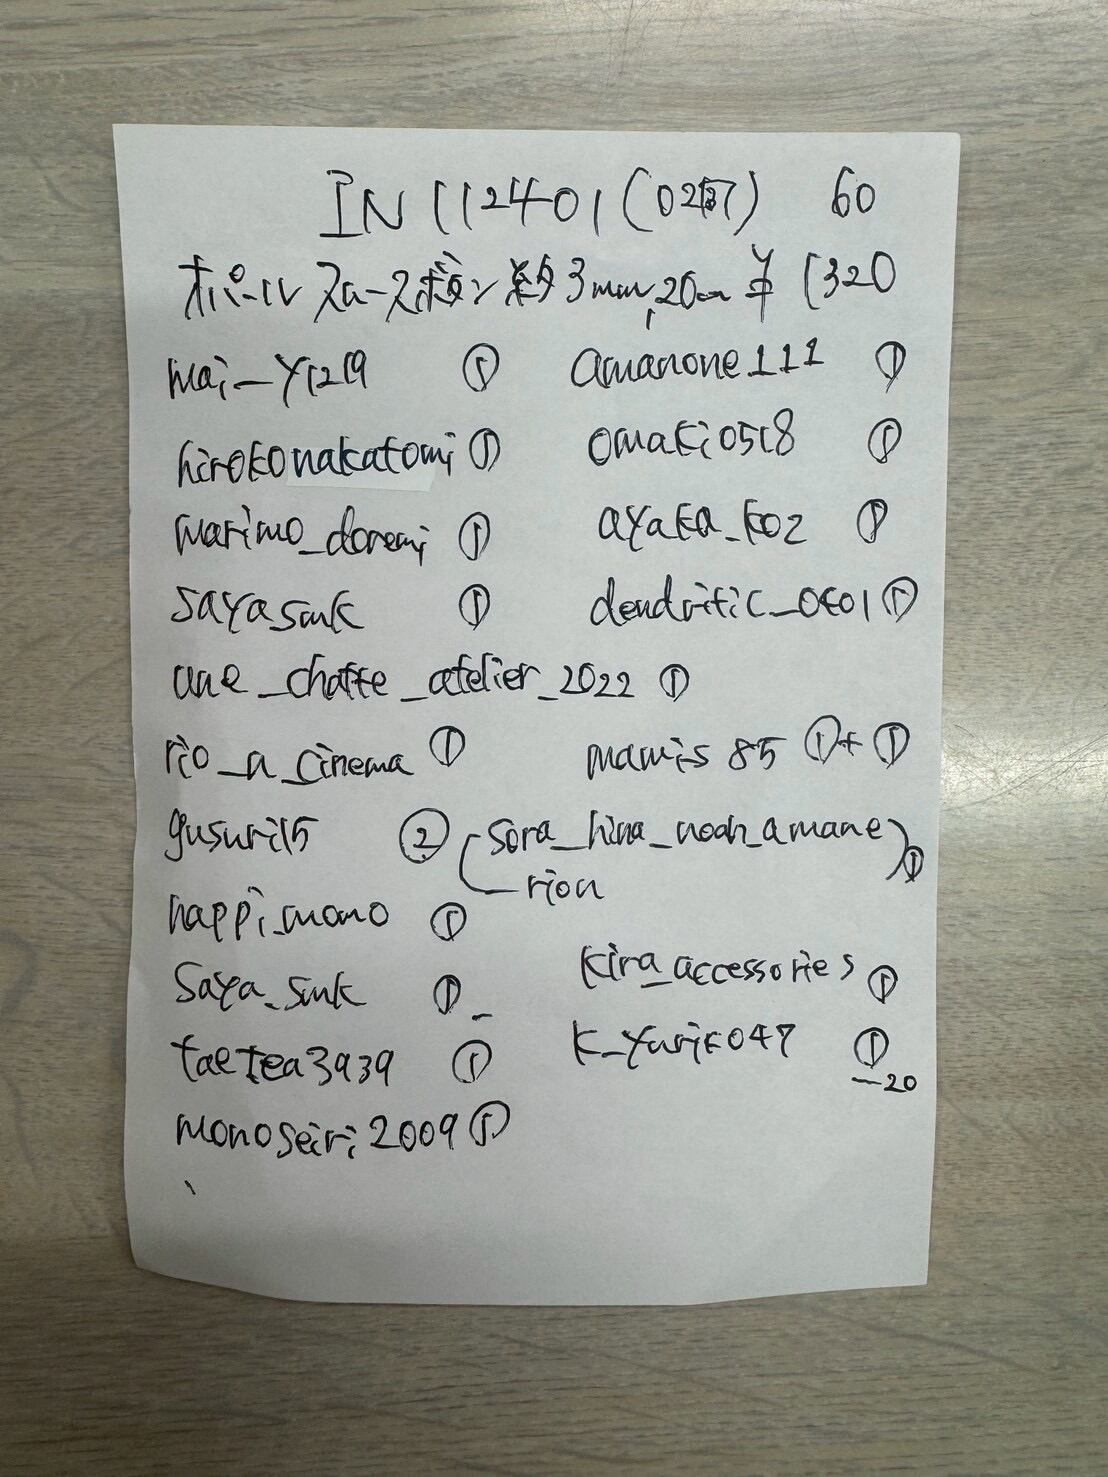 IN 112401 (0237) 60
オパール スロース 約3mm, 20cm ¥1320
mai_y1219 ① amanone111 ①
hirokonakatomi ① omaki0518 ①
marimo_doremi ① ayaka_k02 ①
sayasmk ① dendritic_0401 ①
une_chatte_atelier_2022 ①
rio_a_cinema ① mamis85 ①+①
gusuri15 ② (sora_hina_noah_amane
_rion) ①
happi_mono ①
kira_accessories ①
saya_smk ①
k_yuriko047 ①
taetea3939 ①
—20
monoseiri2009 ①